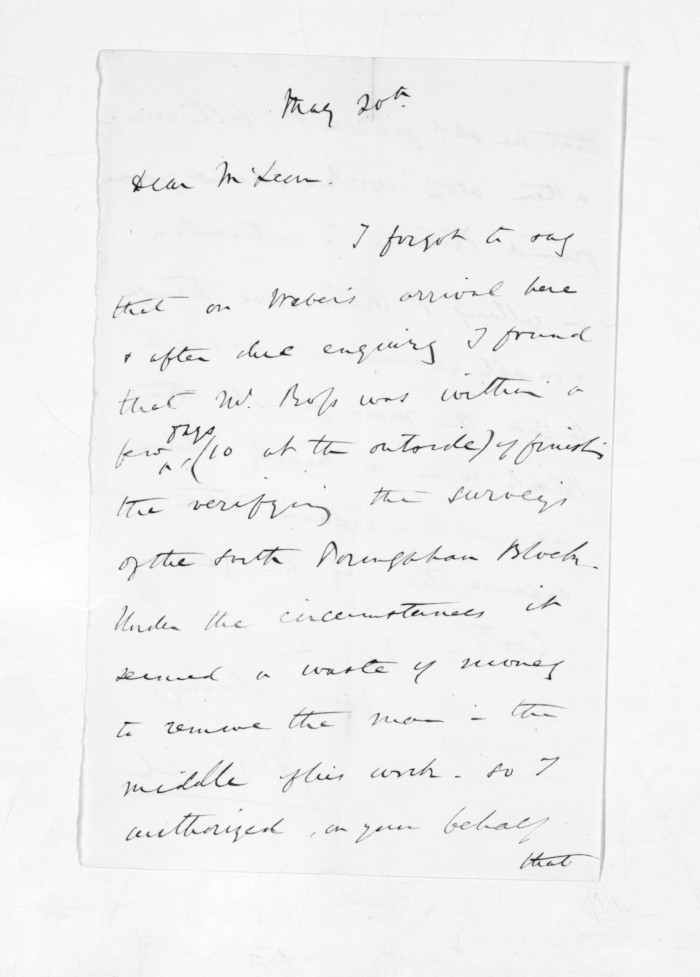 May 20th
Dear McLean.
I forgot to say
that on Weber's arrival here
& after due enquiry I found
that Mr. Ross was within a
few days (10 at the outside) of finishing
the verifying the surveys
of the South Porangahau Block.
Under the circumstances it
seemed a waste of money
to remove the man in the
middle of his work - so I
authorized, on your behalf
that